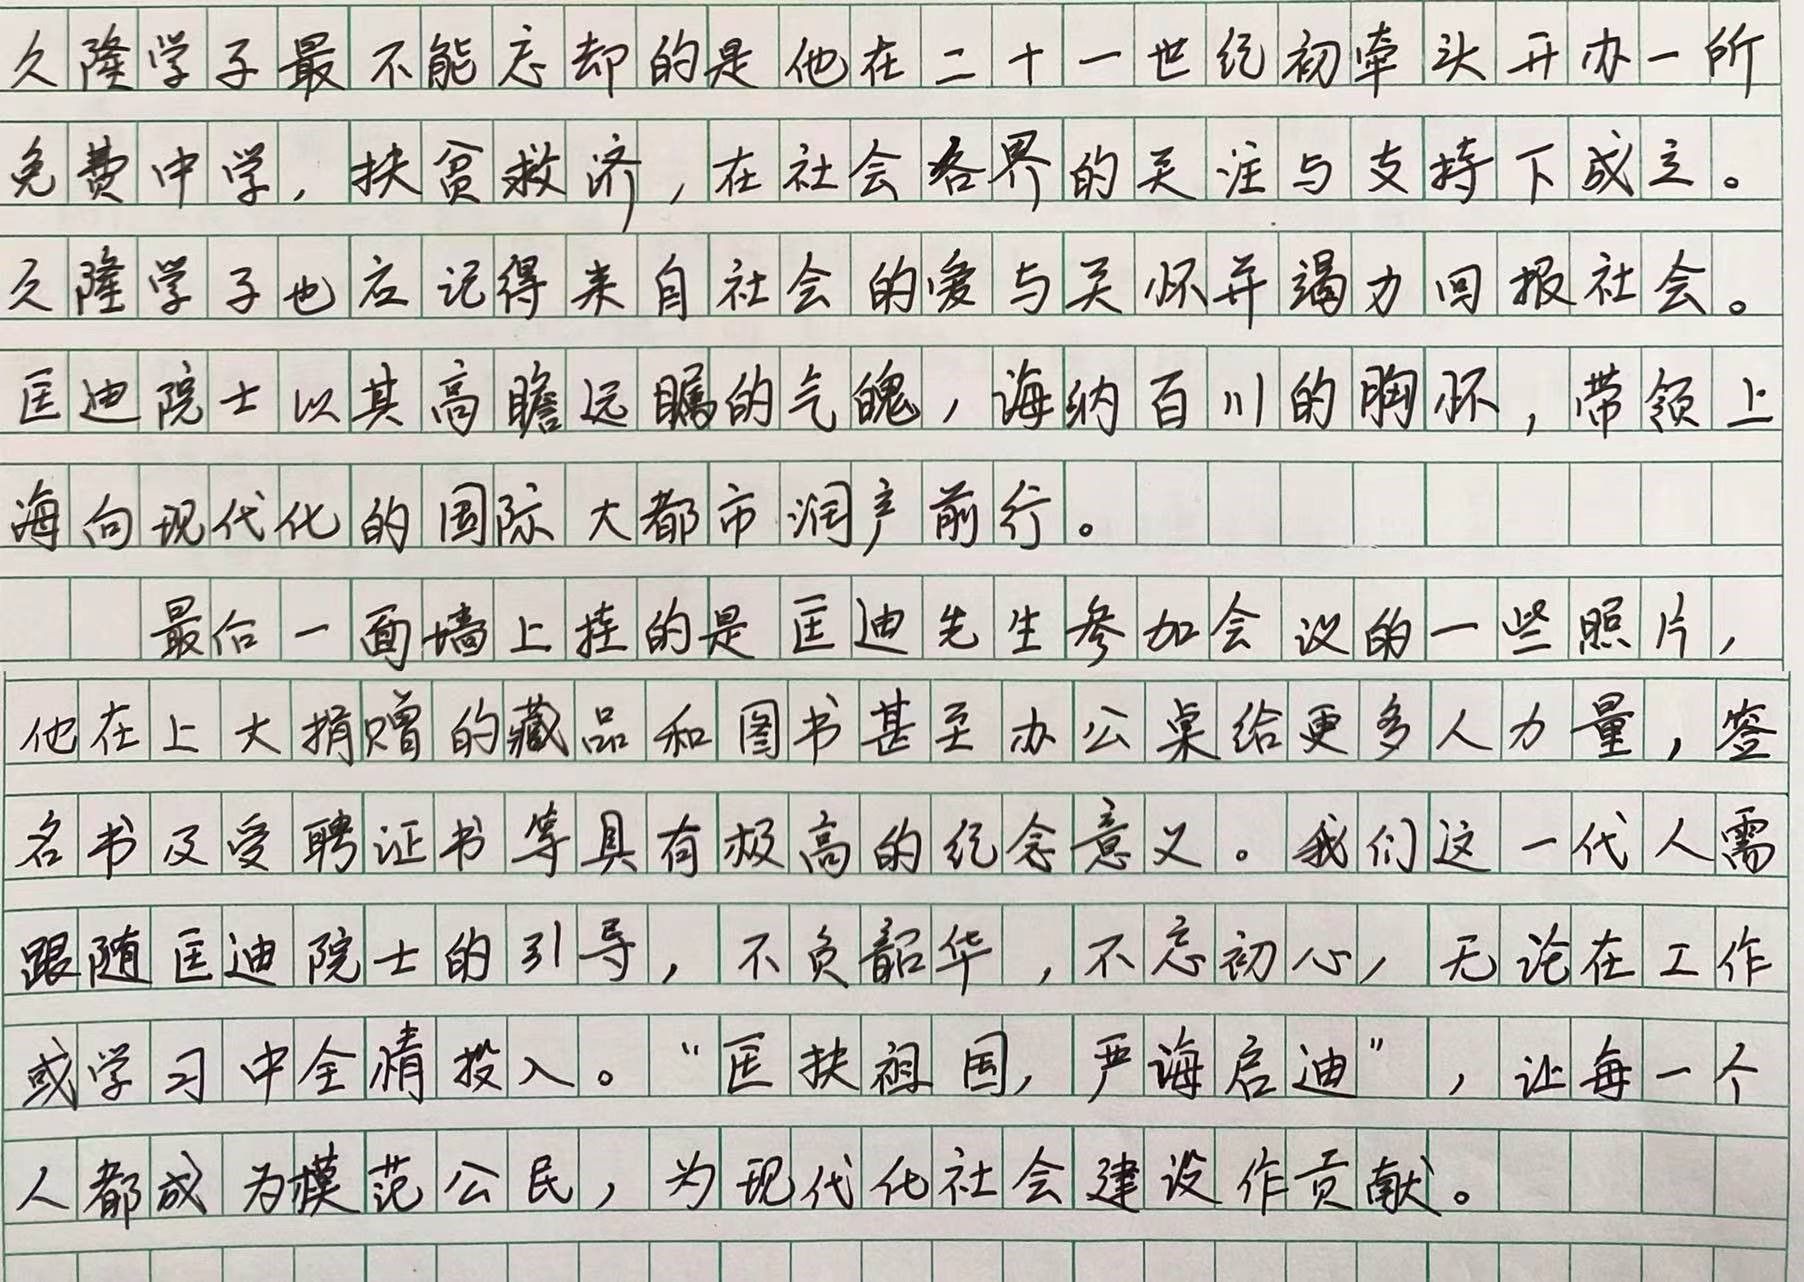 久隆学子最不能忘却的是他在二十一世纪初牵头开办一所
免费中学，扶贫救济，在社会各界的关注与支持下成立。
久隆学子也应记得来自社会的爱与关怀并竭力回报社会。
匡迪院士以其高瞻远瞩的气魄，海纳百川的胸怀，带领上
海向现代化的国际大都市阔步前行。
最后一面墙上挂的是匡迪先生参加会议的一些照片，
他在上大捐赠的藏品和图书甚至办公桌给更多人力量，签
名书及受聘证书等具有极高的纪念意义。我们这一代人需
跟随匡迪院士的引导，不负韶华，不忘初心，无论在工作
或学习中全情投入。“匡扶祖国，严海启迪”，让每一个
人都成为模范公民，为现代化社会建设作贡献。